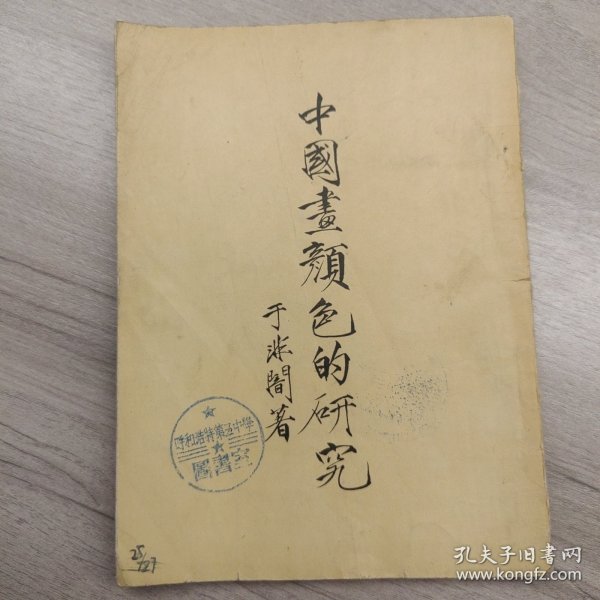 中國畫顏色的研究
于非闇著
呼和浩特第五中學
圖書室
25/27
孔夫子旧书网
www.kongfz.com